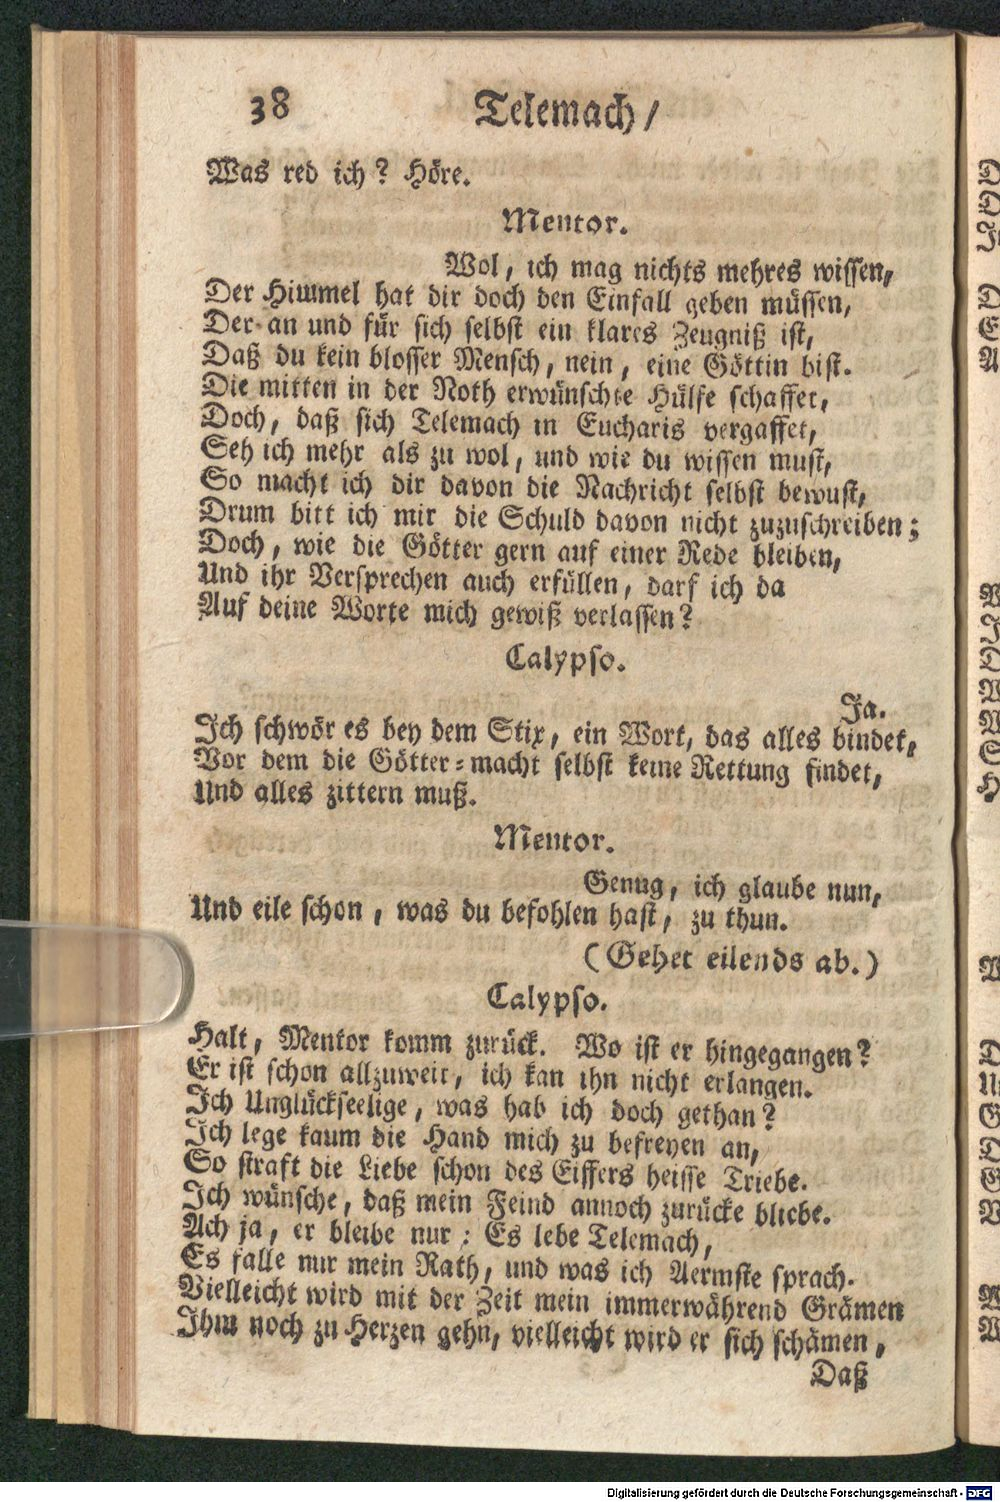 38 Telemach/
Was red ich? Höre.
Mentor.
Wol, ich mag nichts mehres wissen,
Der Himmel hat dir doch den Einfall geben müssen,
Der an und für sich selbst ein klares Zeugniß ist,
Daß du kein blosser Mensch, nein, eine Göttin bist.
Die mitten in der Noth erwünschte Hülfe schaffet,
Doch, daß sich Telemach in Eucharis vergaffet,
Seh ich mehr als zu wol, und wie du wissen must,
So macht ich dir davon die Nachricht selbst bewust,
Drum bitt ich mir die Schuld davon nicht zuzuschreiben;
Doch, wie die Götter gern auf einer Rede bleiben,
Und ihr Versprechen auch erfüllen, darf ich da
Auf deine Worte mich gewiß verlassen?
Calypso.
Ja.
Ich schwör es bey dem Stix, ein Wort, das alles bindet,
Vor dem die Götter-macht selbst keine Rettung findet,
Und alles zittern muß.
Mentor.
Genug, ich glaube nun,
Und eile schon, was du befohlen hast, zu thun.
(Gehet eilends ab.)
Calypso.
Halt, Mentor komm zurück. Wo ist er hingegangen?
Er ist schon allzuweit, ich kan ihn nicht erlangen.
Ich Unglückseelige, was hab ich doch gethan?
Ich lege kaum die Hand mich zu befreyen an,
So straft die Liebe schon des Eiffers heisse Triebe.
Ich wünsche, daß mein Feind annoch zurücke bliebe.
Ach ja, er bleibe nur: Es lebe Telemach,
Es falle nur mein Rath, und was ich Aermste sprach.
Vielleicht wird mit der Zeit mein immerwährend Grämen
Ihm noch zu Herzen gehn, vielleicht wird er sich schämen,
Daß
Digitalisierung gefördert durch die Deutsche Forschungsgemeinschaft - DFG